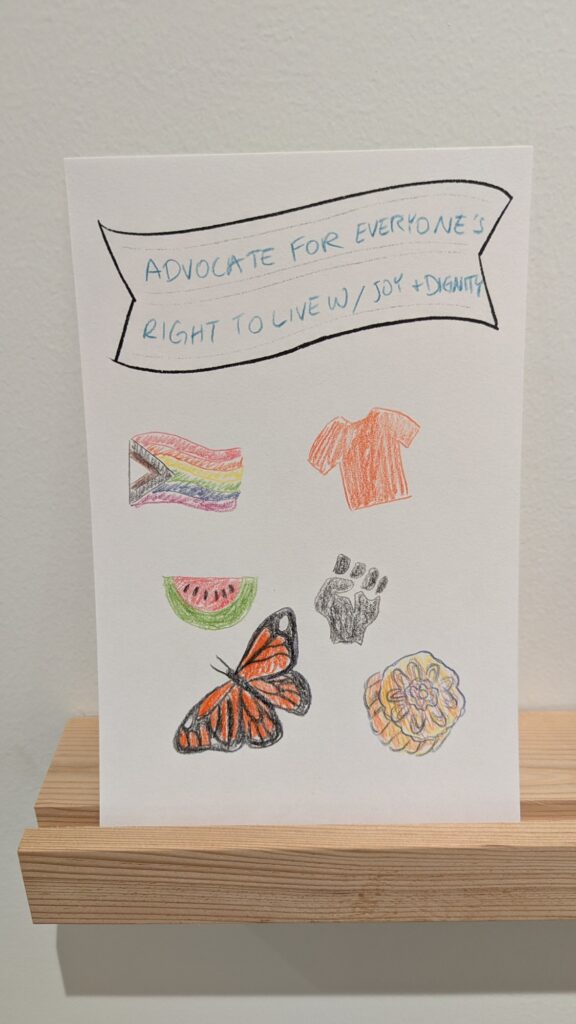 ADVOCATE FOR EVERYONE'S
RIGHT TO LIVE W/ JOY + DIGNITY